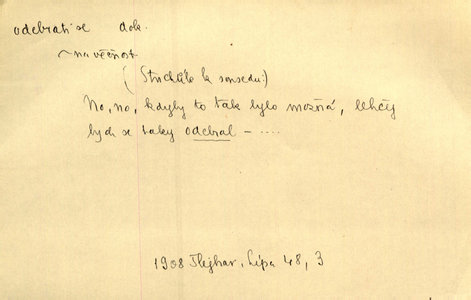 odebrati se dok.
~ na věčnost
( Stuchlík k sousedu:)
No, no, kdyby to tak bylo možná, lehčej
bych se taky odebral – ....
1908 Tlejhar, Lípa 48, 3